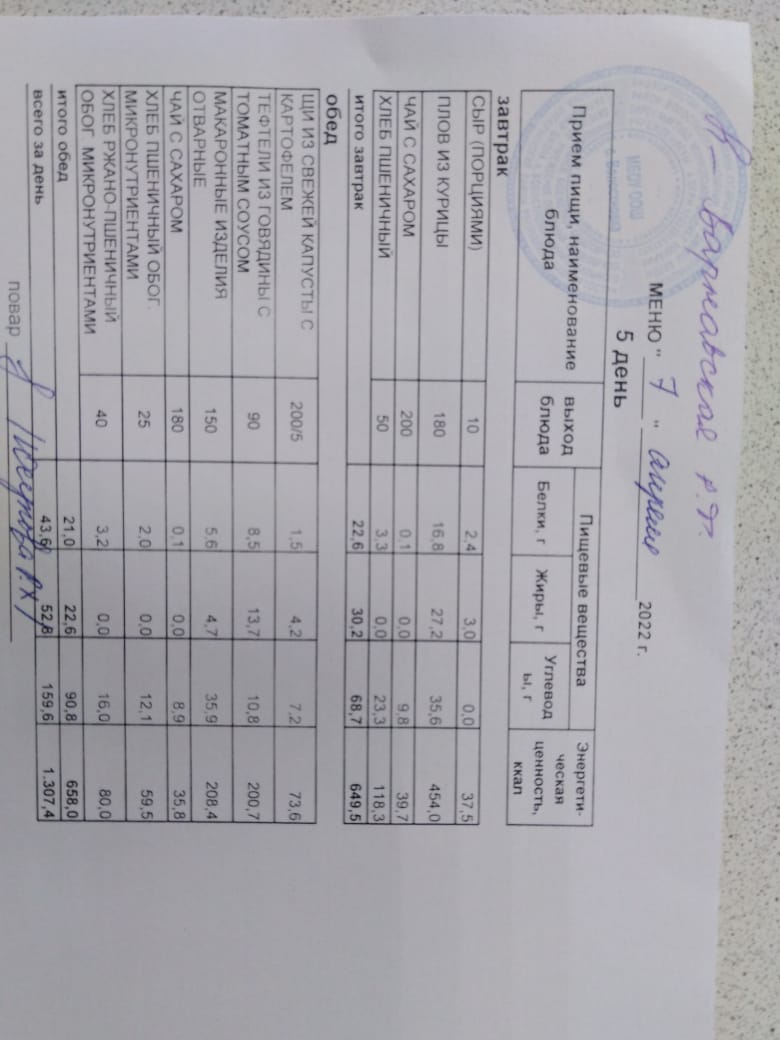 Барнавская Р.Ф.
МЕНЮ " 7 " апреля 2022 г.
5 день
Прием пищи, наименование блюда | выход блюда | Пищевые вещества | Энергети-ческая ценность, ккал
Белки, г | Жиры, г | Углевод ы, г
завтрак
СЫР (ПОРЦИЯМИ) | 10 | 2,4 | 3,0 | 0,0 | 37,5
ПЛОВ ИЗ КУРИЦЫ | 180 | 16,8 | 27,2 | 35,6 | 454,0
ЧАЙ С САХАРОМ | 200 | 0,1 | 0,0 | 9,8 | 39,7
ХЛЕБ ПШЕНИЧНЫЙ | 50 | 3,3 | 0,0 | 23,3 | 118,3
итого завтрак | 22,6 | 30,2 | 68,7 | 649,5
обед
ЩИ ИЗ СВЕЖЕЙ КАПУСТЫ С
КАРТОФЕЛЕМ | 200/5 | 1,5 | 4,2 | 7,2 | 73,6
ТЕФТЕЛИ ИЗ ГОВЯДИНЫ С
ТОМАТНЫМ СОУСОМ | 90 | 8,5 | 13,7 | 10,8 | 200,7
МАКАРОННЫЕ ИЗДЕЛИЯ
ОТВАРНЫЕ | 150 | 5,6 | 4,7 | 35,9 | 208,4
ЧАЙ С САХАРОМ | 180 | 0,1 | 0,0 | 8,9 | 35,8
ХЛЕБ ПШЕНИЧНЫЙ ОБОГ.
МИКРОНУТРИЕНТАМИ | 25 | 2,0 | 0,0 | 12,1 | 59,5
ХЛЕБ РЖАНО-ПШЕНИЧНЫЙ
ОБОГ. МИКРОНУТРИЕНТАМИ | 40 | 3,2 | 0,0 | 16,0 | 80,0
итого обед | 21,0 | 22,6 | 90,8 | 658,0
всего за день | 43,6 | 52,8 | 159,6 | 1.307,4
повар